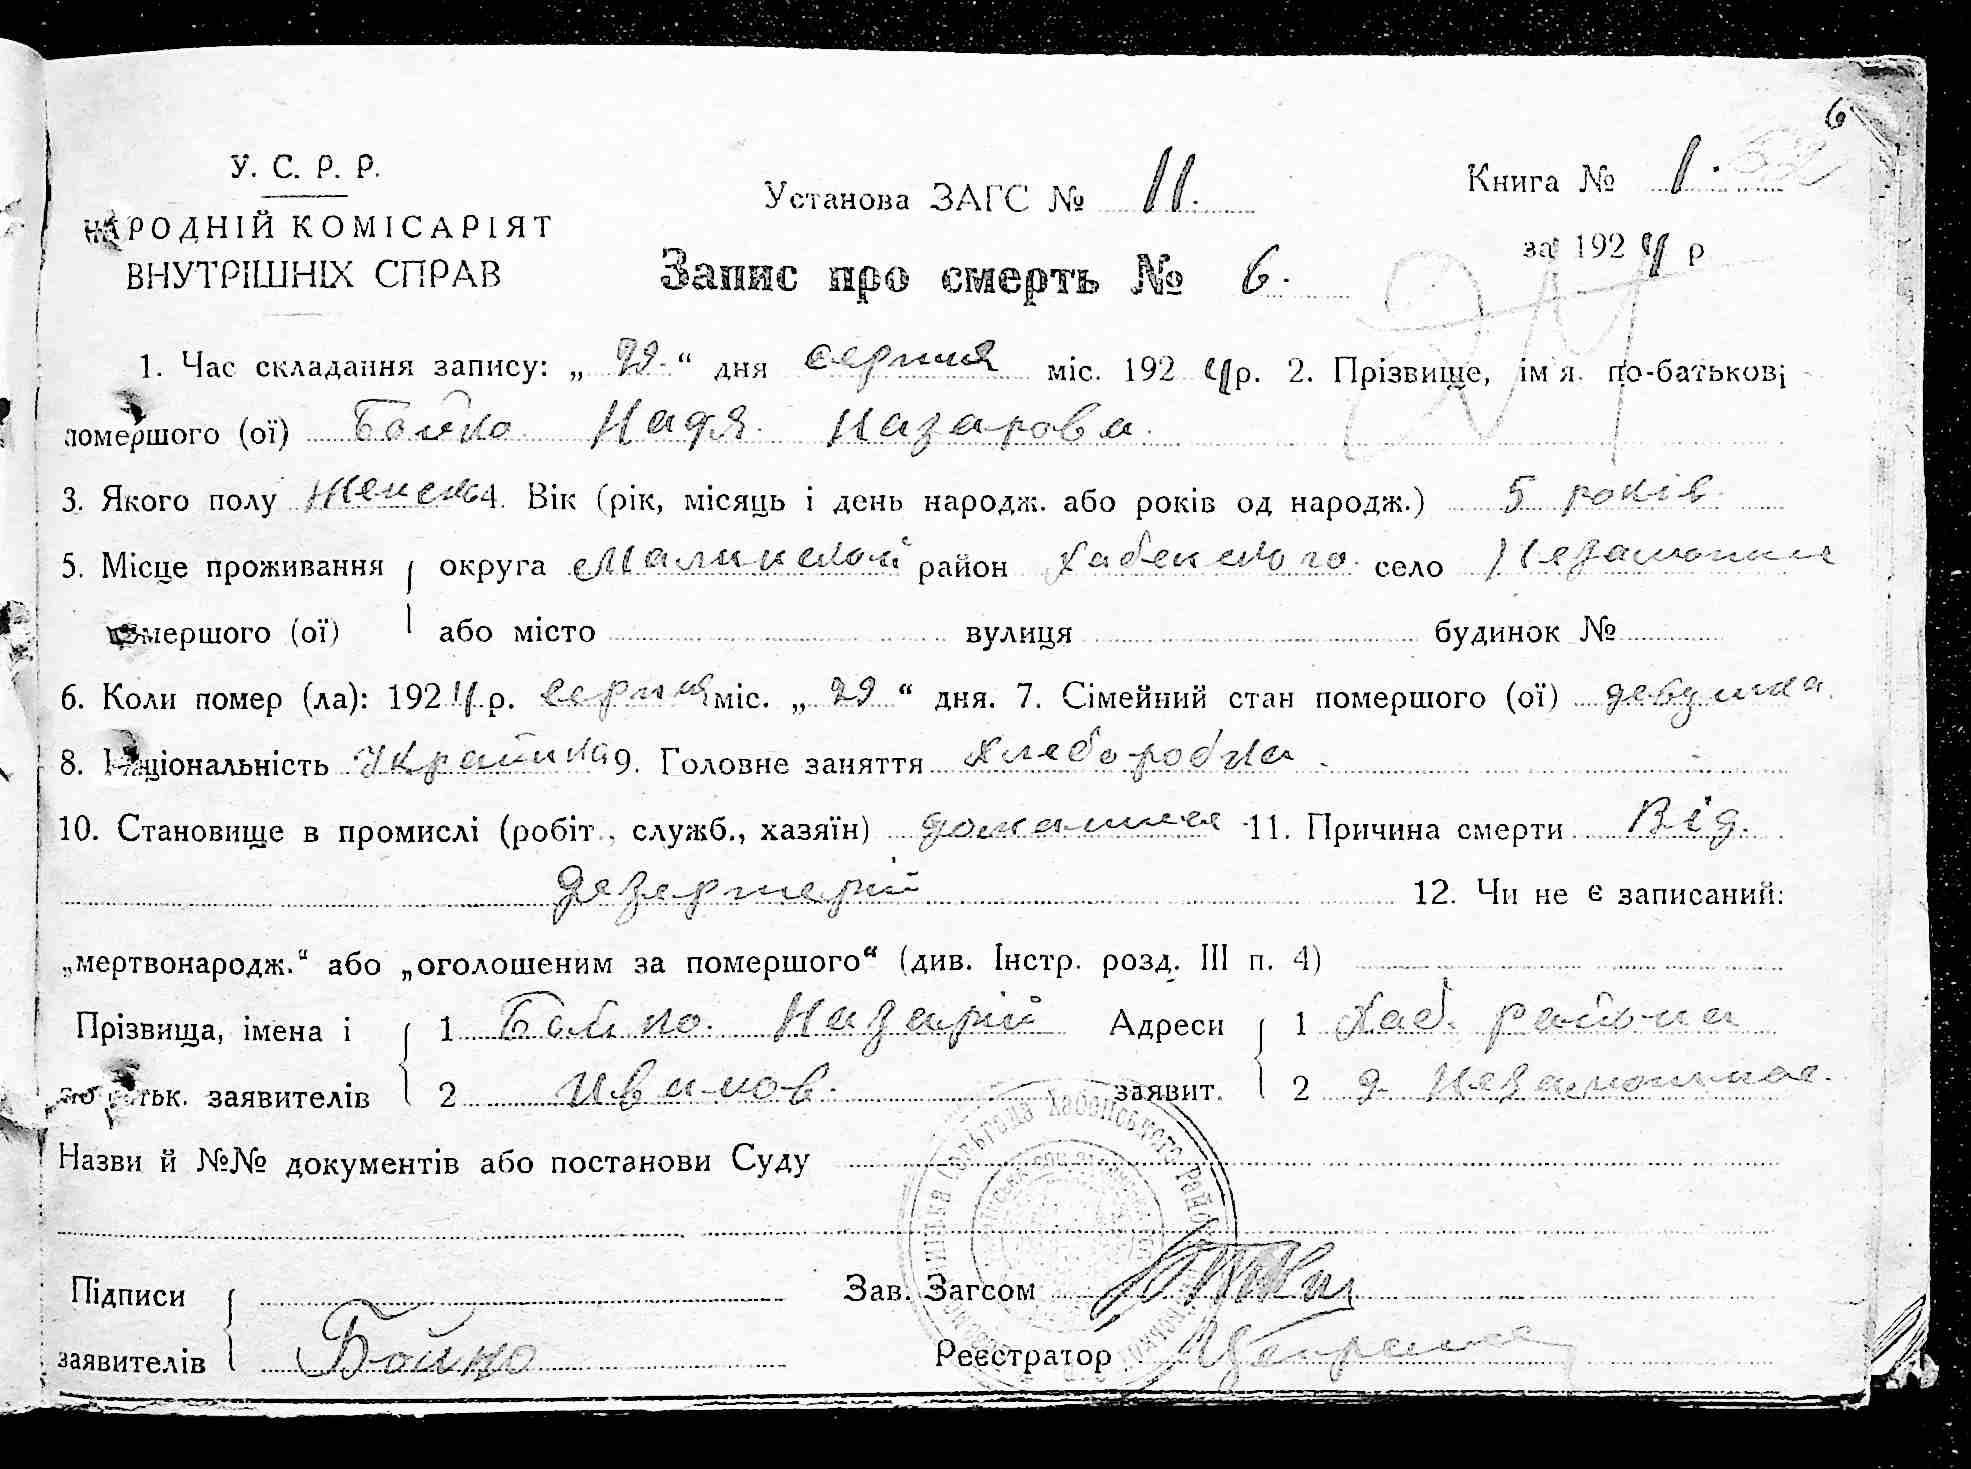 6
У. С. Р. Р.
НАРОДНІЙ КОМІСАРІЯТ
ВНУТРІШНІХ СПРАВ
Установа ЗАГС № 11.
Книга № 1.
за 1924 р
Запис про смерть № 6.
1. Час складання запису: „ 29. “ дня серпня міс. 1924 р. 2. Прізвище, ім'я. по-батькові
помершого (ої) Бойко Надя Назарова.
3. Якого полу Женсько 4. Вік (рік, місяць і день народж. або років од народж.) 5 років.
5. Місце проживання округа Малинской район Хабенського село
помершого (ої) або місто вулиця будинок №
6. Коли помер (ла): 1924 р. серпня міс. „ 29 “ дня. 7. Сімейний стан помершого (ої) девушка.
8. Національність Українка 9. Головне заняття хлеборобка
10. Становище в промислі (робіт., служб., хазяїн) домашнее 11. Причина смерти Від.
дезертерій 12. Чи не є записаний:
„мертвонародж.“ або „оголошеним за помершого“ (див. Інстр. розд. III п. 4)
Прізвища, імена і 1 Бойко. Назарій Адреси 1 Хаб. района
по батьк. заявителів 2 Ивинов. заявит. 2 д.
Назви й №№ документів або постанови Суду
Сільрада Хабенського Району
Підписи Зав. Загсом
заявителів Бойко Реєстратор